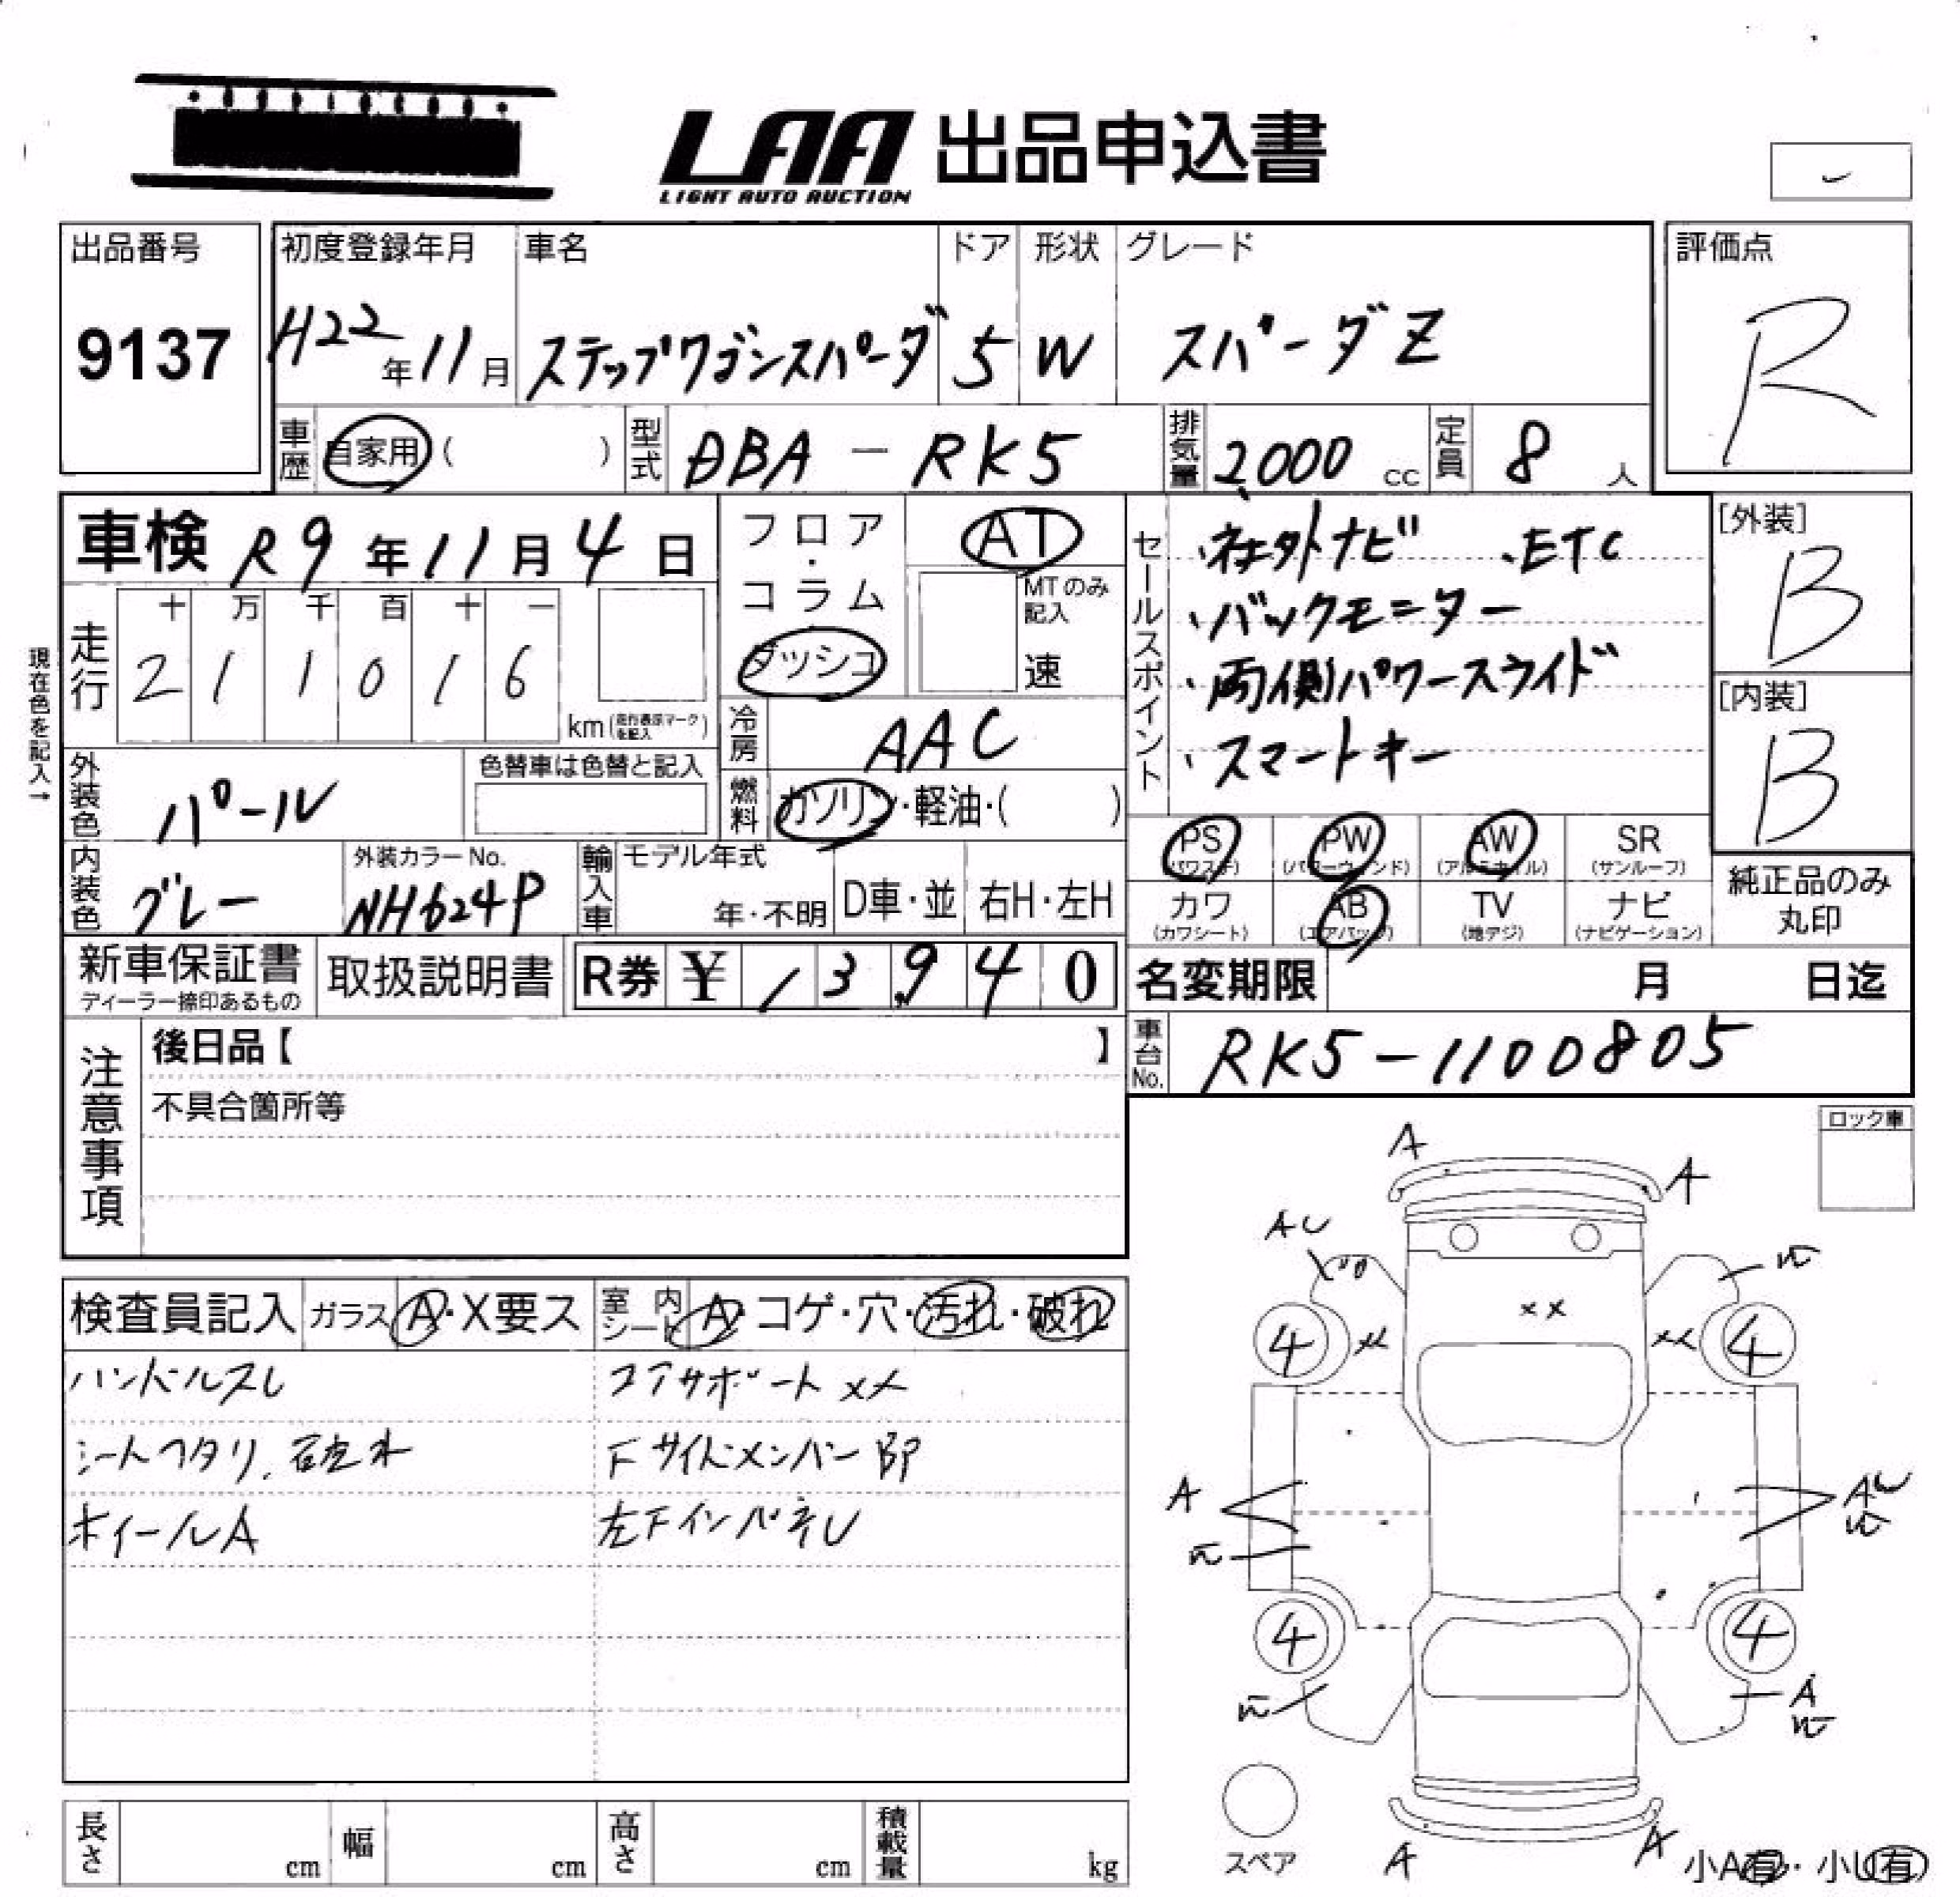 LAA 出品申込書
LIGHT AUTO AUCTION
出品番号 初度登録年月 車名 ドア 形状 グレード 評価点
9137 H22年11月 ステップワゴンスパーダ 5 W スパーダZ R
車歴 自家用( ) 型式 DBA-RK5 排気量 2,000cc 定員 8人
車検 R9年11月4日
フロア・コラム ダッシュ
AT
MTのみ記入
速
現在色を記入→
走行 十 万 千 百 十 一
2 1 1 0 1 6 km(走行表示マークを記入)
冷房 AAC
燃料 ガソリン・軽油・( )
外装色 パール
色替車は色替と記入
内装色 グレー
外装カラーNo. NH624P
輸入車 モデル年式 年・不明 D車・並 右H・左H
セールスポイント
・社外ナビ ・ETC
・バックモニター
・両側パワースライド
・スマートキー
[外装] B
[内装] B
PS (パワステ) PW (パワーウィンド) AW (アルミホイル) SR (サンルーフ)
カワ (カワシート) AB (エアバッグ) TV (地デジ) ナビ (ナビゲーション)
純正品のみ丸印
新車保証書 ディーラー捺印あるもの 取扱説明書 R券 ¥ 13,940
名変期限 月 日迄
車台No. RK5-1100805
注意事項
後日品【 】
不具合箇所等
ロック車
検査員記入 ガラス A・X要ス 室内シート A・コゲ・穴・汚れ・破れ
ハンドルスレ コアサポート XX
シートヘタリ、 Fサイドメンバー
ホイールA 左Fインパネ U
A A
AU
XX
XX XX
4 4
A
AU
4 4
A
A A
スペア
小A有・小U有
長さ cm 幅 cm 高さ cm 積載量 kg